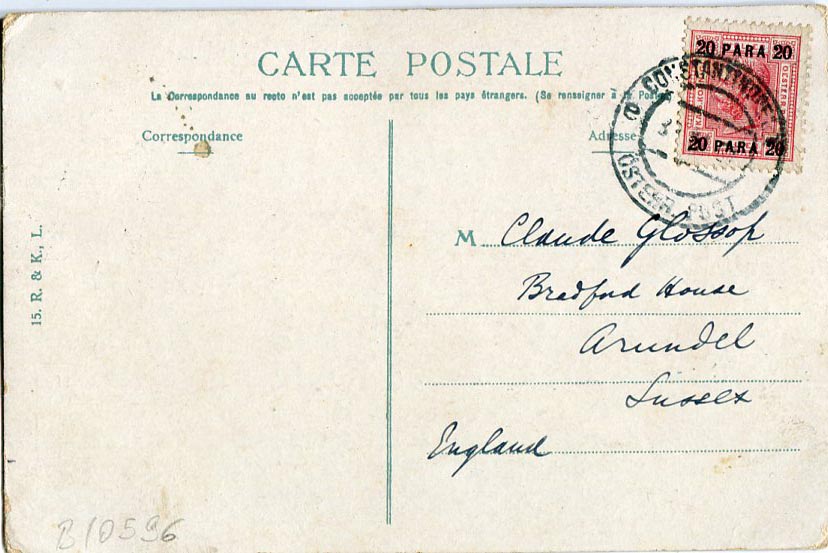 CARTE POSTALE
La Correspondance au recto n'est pas acceptée par tous les pays étrangers. (Se renseigner à la Poste
Correspondance
Adresse
20 PARA 20
20 PARA 20
CONSTANTINOPEL
ÖSTERR. POST
M Claude Glossop
Bradford House
Arundel
Sussex
England
15. R. & K., L.
B10596